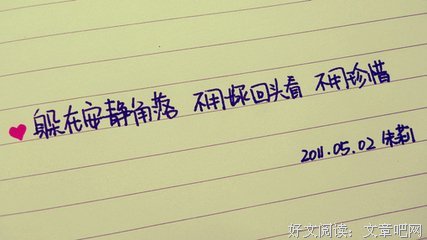 躲在安静角落 不用你回头看 不用珍惜
2011.05.02 朱莉
好文阅读：文章吧网